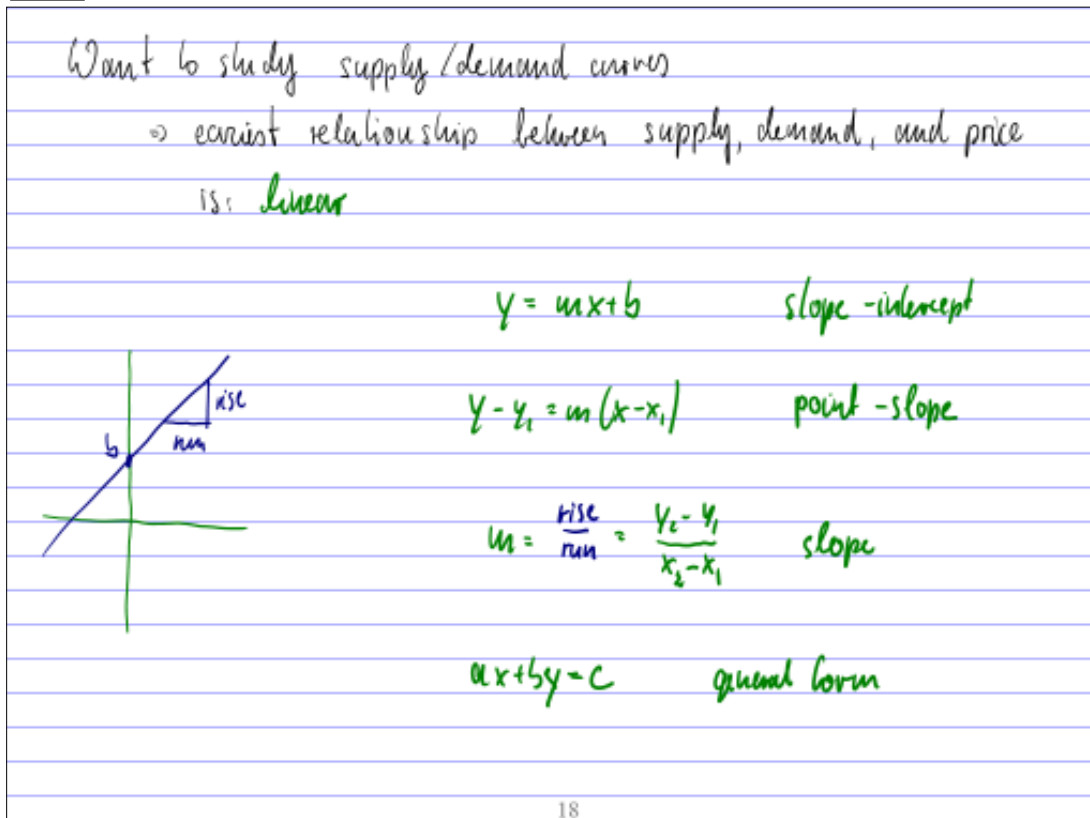 Want to study supply/demand curves
⇒ easiest relationship between supply, demand, and price
is: linear
y = mx+b slope-intercept
y - y₁ = m(x-x₁) point-slope
rise
run
b
m = rise/run = (y₂ - y₁)/(x₂ - x₁) slope
ax+by=c general form
18